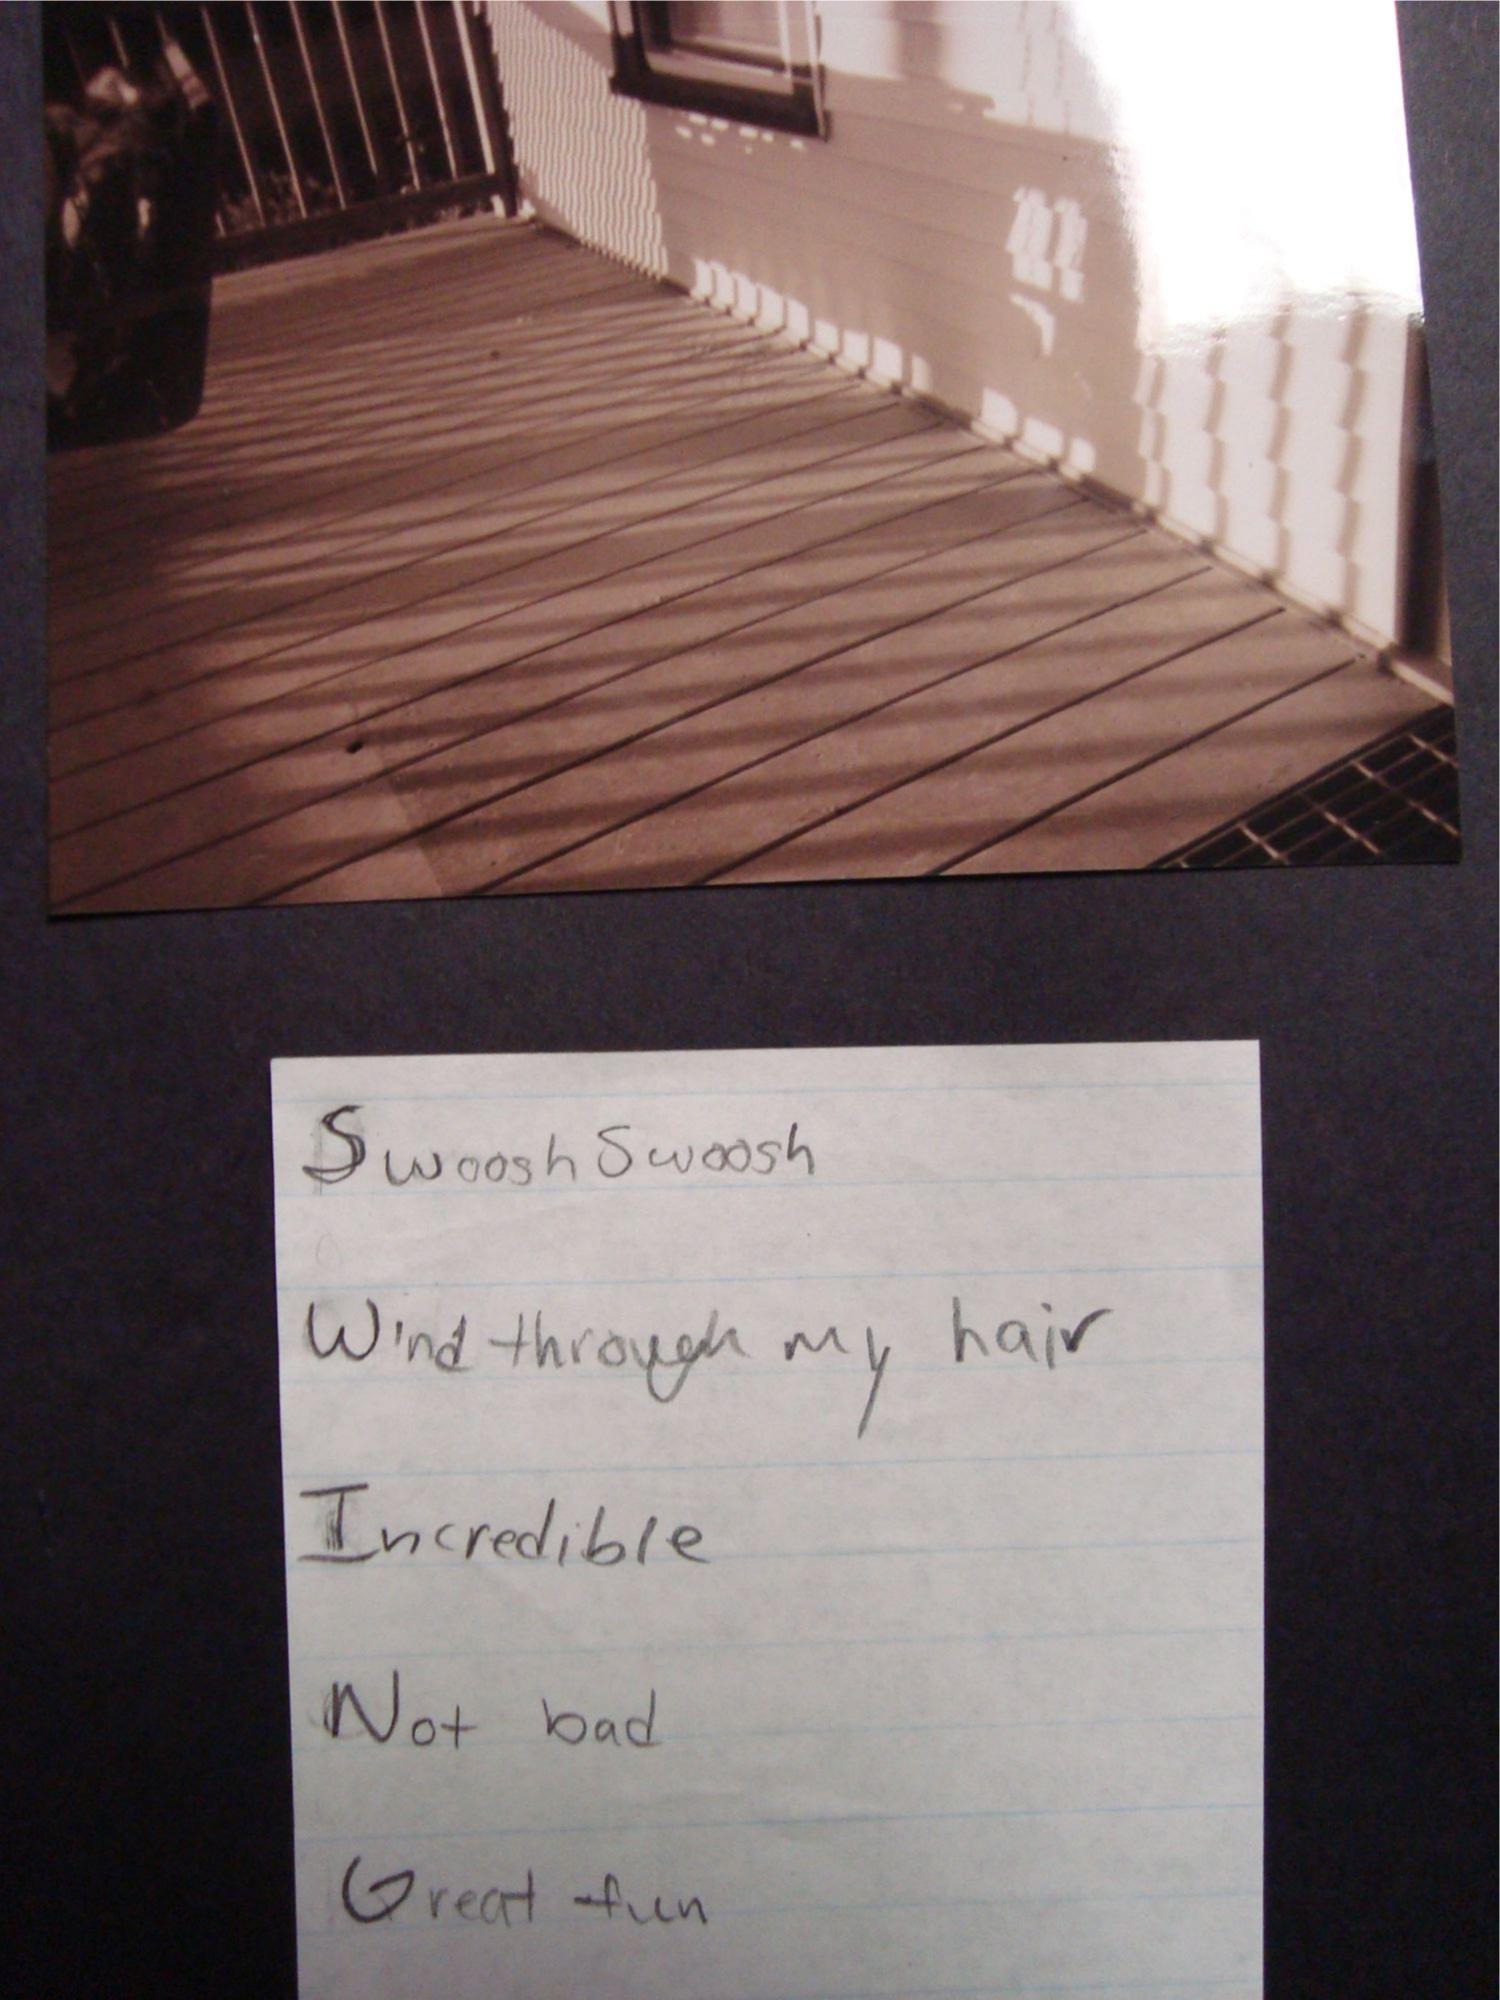 Swoosh Swoosh
Wind through my hair
Incredible
Not bad
Great fun